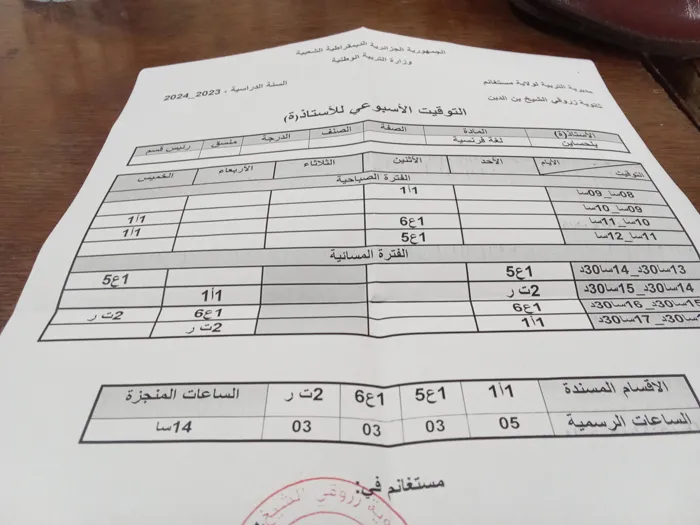 الجمهورية الجزائرية الديمقراطية الشعبية
وزارة التربية الوطنية
مديرية التربية لولاية مستغانم
السنة الدراسية : 2023_2024
ثانوية زروقي الشيخ بن الدين
التوقيت الأسبوعي للأستاذ(ة)
الأستاذ(ة) المادة الصفة الصنف الدرجة منسق رئيس قسم
بلحسابن لغة فرنسية
التوقيت الأيام الأحد الأثنين الثلاثاء الأربعاء الخميس
الفترة الصباحية
08سا_09سا 1أ1
09سا_10سا
10سا_11سا 1ع6 1أ1
11سا_12سا 1ع5 1أ1
الفترة المسائية
13سا30د_14سا30د 1ع5 1ع5
14سا30د_15سا30د 2ت ر 1أ1
15سا30د_16سا30د 1ع6 1ع6 2ت ر
30د_17سا30د 1أ1 2ت ر
الاقسام المسندة 1أ1 1ع5 1ع6 2ت ر الساعات المنجزة
الساعات الرسمية 05 03 03 03 14سا
مستغانم في:
ثانوية زروقي الشيخ